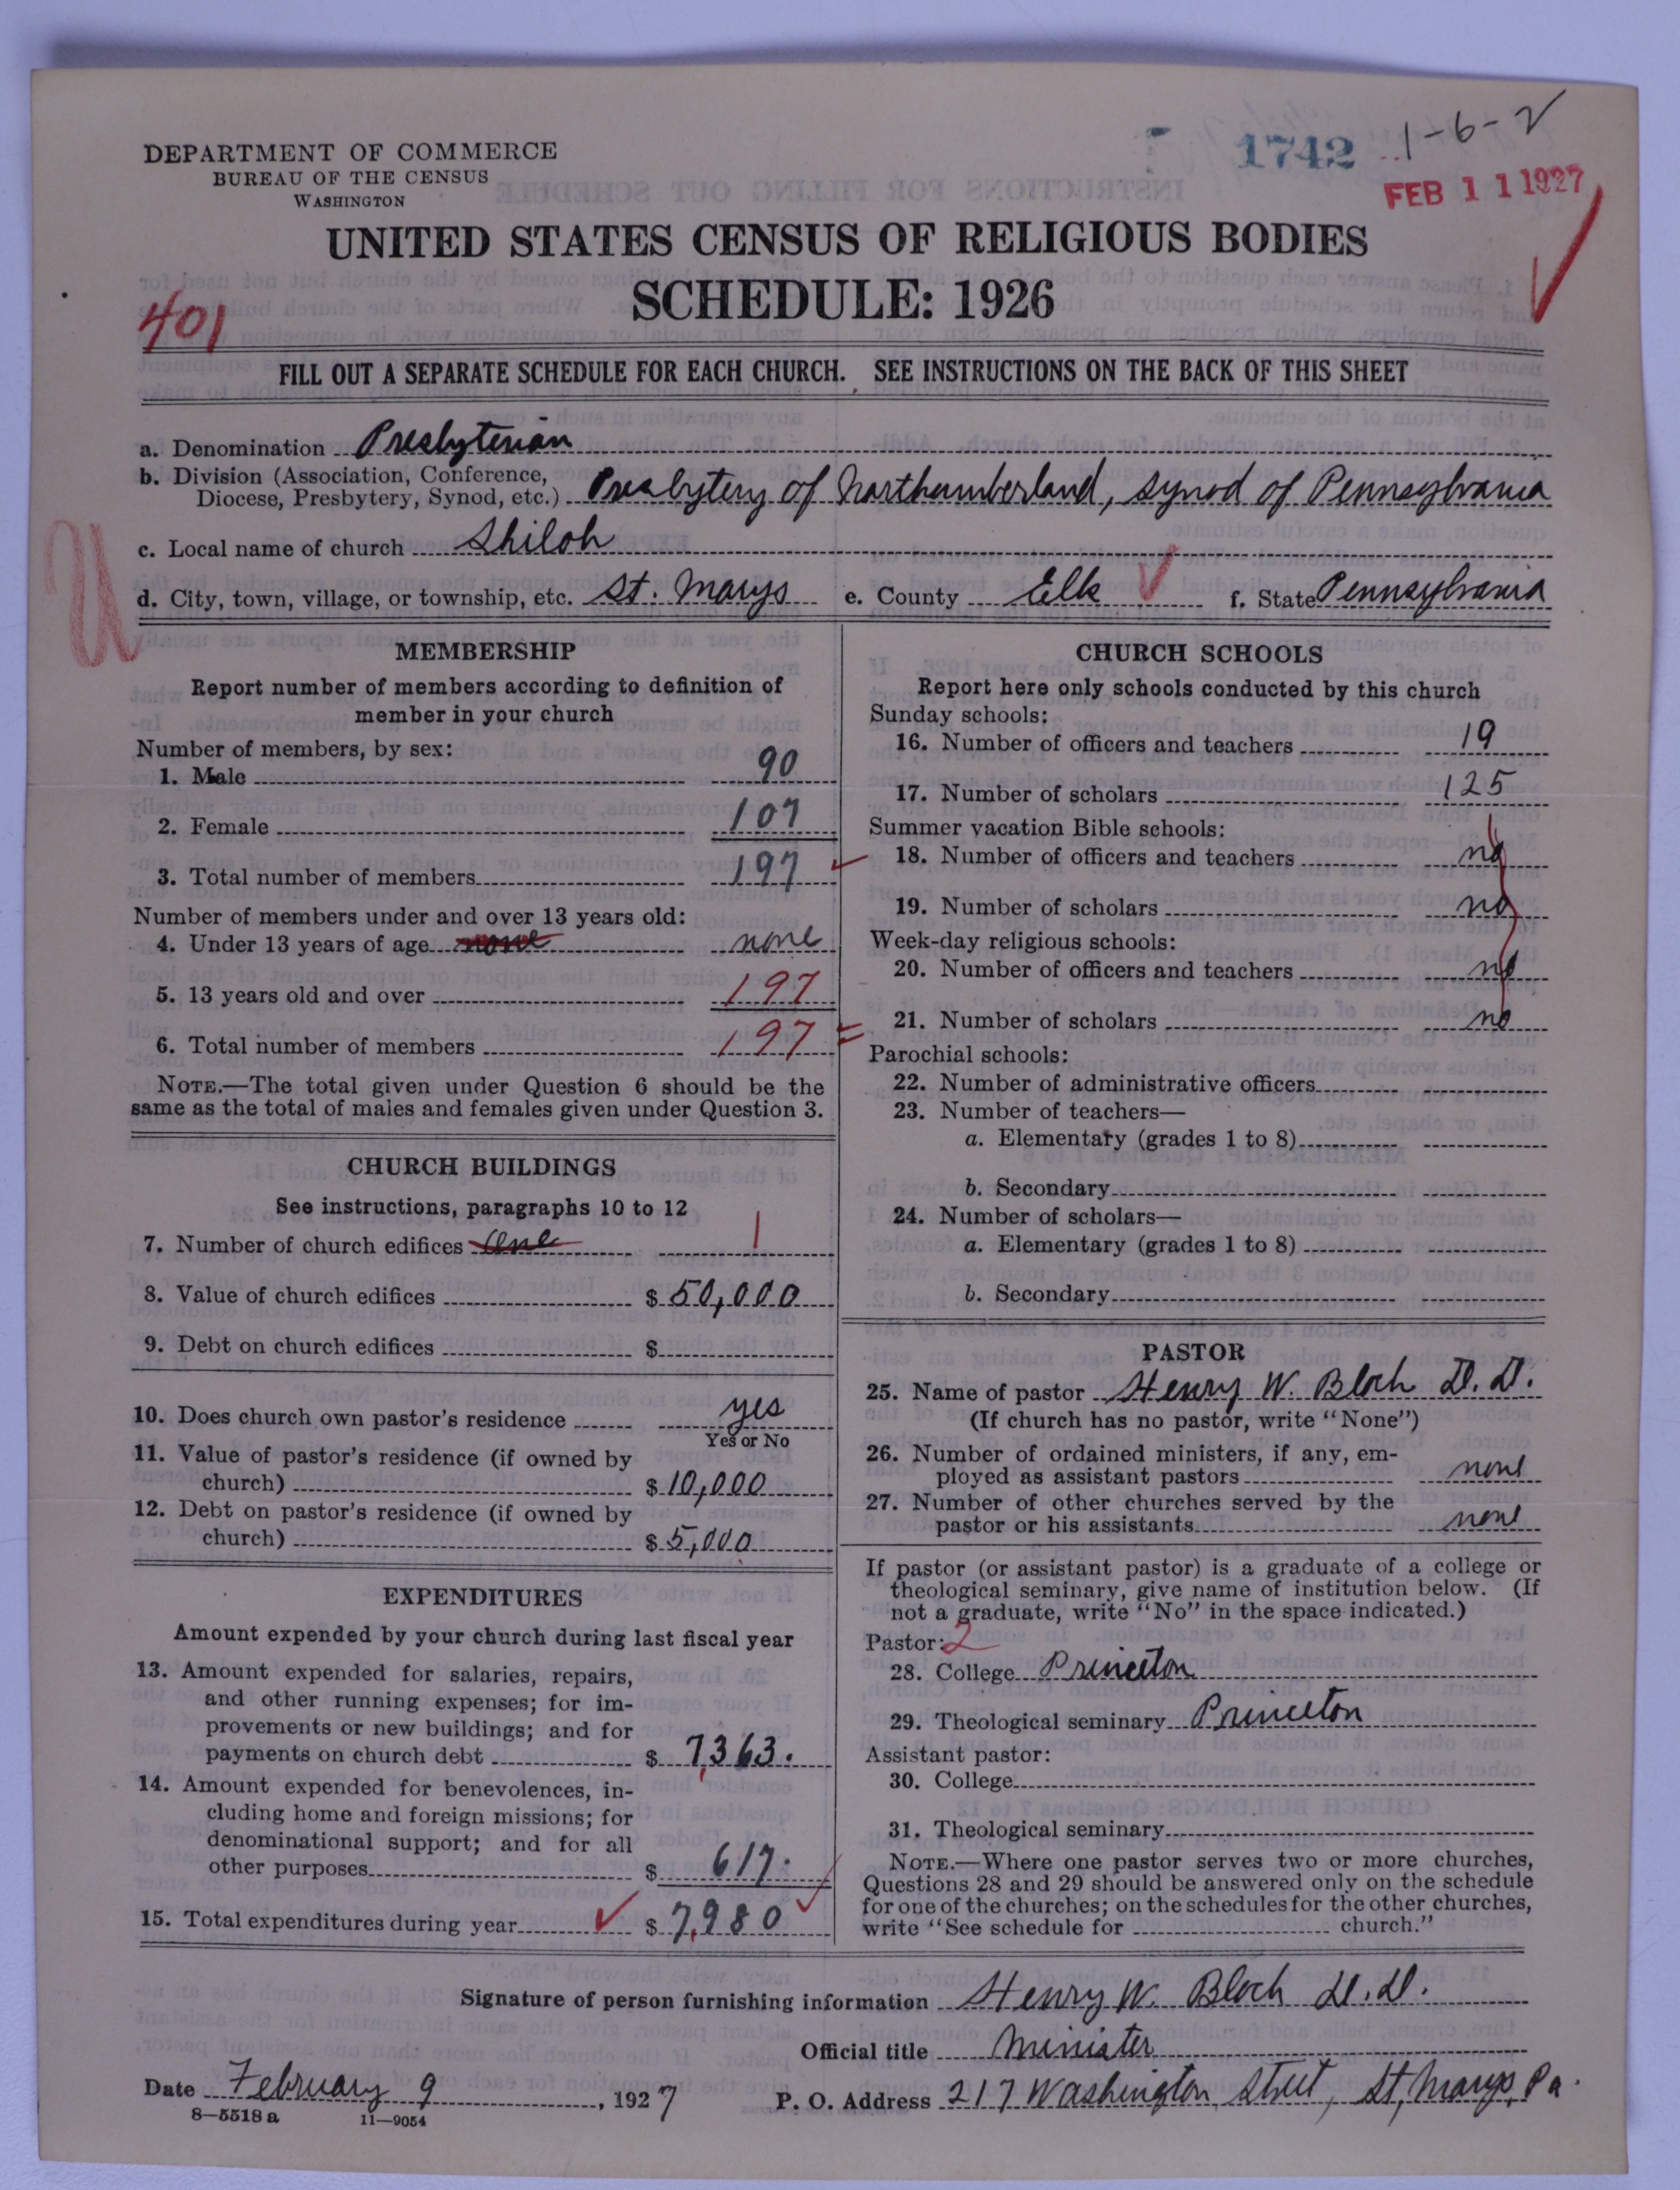 DEPARTMENT OF COMMERCE
BUREAU OF THE CENSUS
WASHINGTON
1742
1-6-2
FEB 11 1927
UNITED STATES CENSUS OF RELIGIOUS BODIES
SCHEDULE: 1926
401
FILL OUT A SEPARATE SCHEDULE FOR EACH CHURCH. SEE INSTRUCTIONS ON THE BACK OF THIS SHEET
a. Denomination Presbyterian
b. Division (Association, Conference,
Diocese, Presbytery, Synod, etc.) Presbytery of Northumberland, Synod of Pennsylvania
c. Local name of church Shiloh
U
d. City, town, village, or township, etc. St. Marys e. County Elk f. State Pennsylvania
MEMBERSHIP
Report number of members according to definition of
member in your church
Number of members, by sex:
1. Male 90
2. Female 107
3. Total number of members 197
Number of members under and over 13 years old:
4. Under 13 years of age none none
5. 13 years old and over 197
6. Total number of members 197
NOTE.—The total given under Question 6 should be the
same as the total of males and females given under Question 3.
CHURCH BUILDINGS
See instructions, paragraphs 10 to 12
7. Number of church edifices One 1
8. Value of church edifices $ 50,000
9. Debt on church edifices $
10. Does church own pastor's residence yes
Yes or No
11. Value of pastor's residence (if owned by
church) $ 10,000
12. Debt on pastor's residence (if owned by
church) $ 5,000
EXPENDITURES
Amount expended by your church during last fiscal year
13. Amount expended for salaries, repairs,
and other running expenses; for im-
provements or new buildings; and for
payments on church debt $ 7,363.
14. Amount expended for benevolences, in-
cluding home and foreign missions; for
denominational support; and for all
other purposes $ 617.
15. Total expenditures during year $ 7,980
CHURCH SCHOOLS
Report here only schools conducted by this church
Sunday schools:
16. Number of officers and teachers 19
17. Number of scholars 125
Summer vacation Bible schools:
18. Number of officers and teachers no
19. Number of scholars no
Week-day religious schools:
20. Number of officers and teachers no
21. Number of scholars no
Parochial schools:
22. Number of administrative officers
23. Number of teachers—
a. Elementary (grades 1 to 8)
b. Secondary
24. Number of scholars—
a. Elementary (grades 1 to 8)
b. Secondary
PASTOR
25. Name of pastor Henry W. Bloch D. D.
(If church has no pastor, write "None")
26. Number of ordained ministers, if any, em-
ployed as assistant pastors none
27. Number of other churches served by the
pastor or his assistants none
If pastor (or assistant pastor) is a graduate of a college or
theological seminary, give name of institution below. (If
not a graduate, write "No" in the space indicated.)
Pastor: 2
28. College Princeton
29. Theological seminary Princeton
Assistant pastor:
30. College
31. Theological seminary
NOTE.—Where one pastor serves two or more churches,
Questions 28 and 29 should be answered only on the schedule
for one of the churches; on the schedules for the other churches,
write "See schedule for church."
Signature of person furnishing information Henry W. Bloch D. D.
Official title Minister
Date February 9, 1927 P. O. Address 217 Washington Street, St. Marys, Pa.
8—5518 a 11—9054